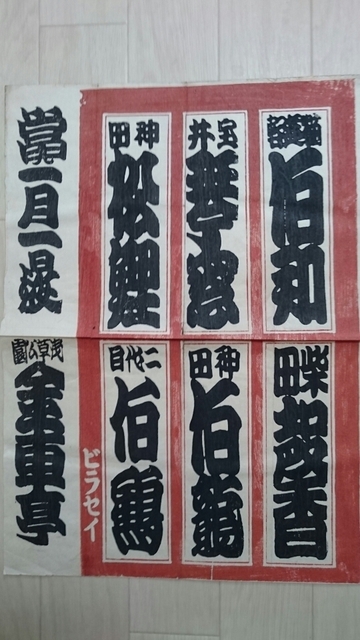 猫遊軒伯知
宝井琴窓
神田松鯉
柴田馨
神田伯龍
二代目伯鶴
ビラセイ
當ル一月一日
浅草公園金車亭